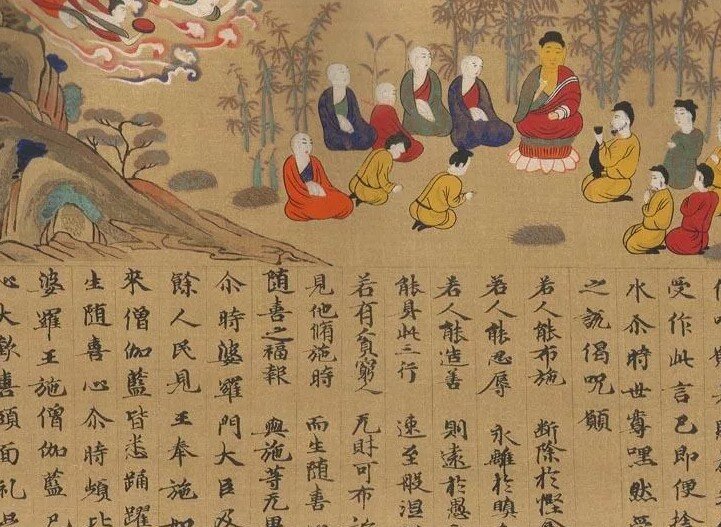 受作此言已即便捨
水尒時世尊嘿然受
之說偈呪願
若人能布施 斷除於慳貪
若人能忍辱 永離於瞋
若人能造善 則遠於愚
能具此三行 速至般涅
若有貧窮人 无財可布施
見他脩施時 而生隨喜
隨喜之福報 與施等无異
尒時婆羅門大臣及
餘人民見王奉施如
來僧伽藍皆悉踊躍
生隨喜心尒時頻毗
婆羅王施僧伽藍已
心大歡喜頭面礼足